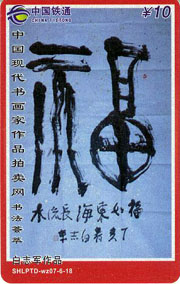 中国铁通
CHINA TIETONG
¥10
中国现代书画家作品拍卖网 书法荟萃
福
福如东海长流水
白志军作品
SHLPTD-wz07-6-18